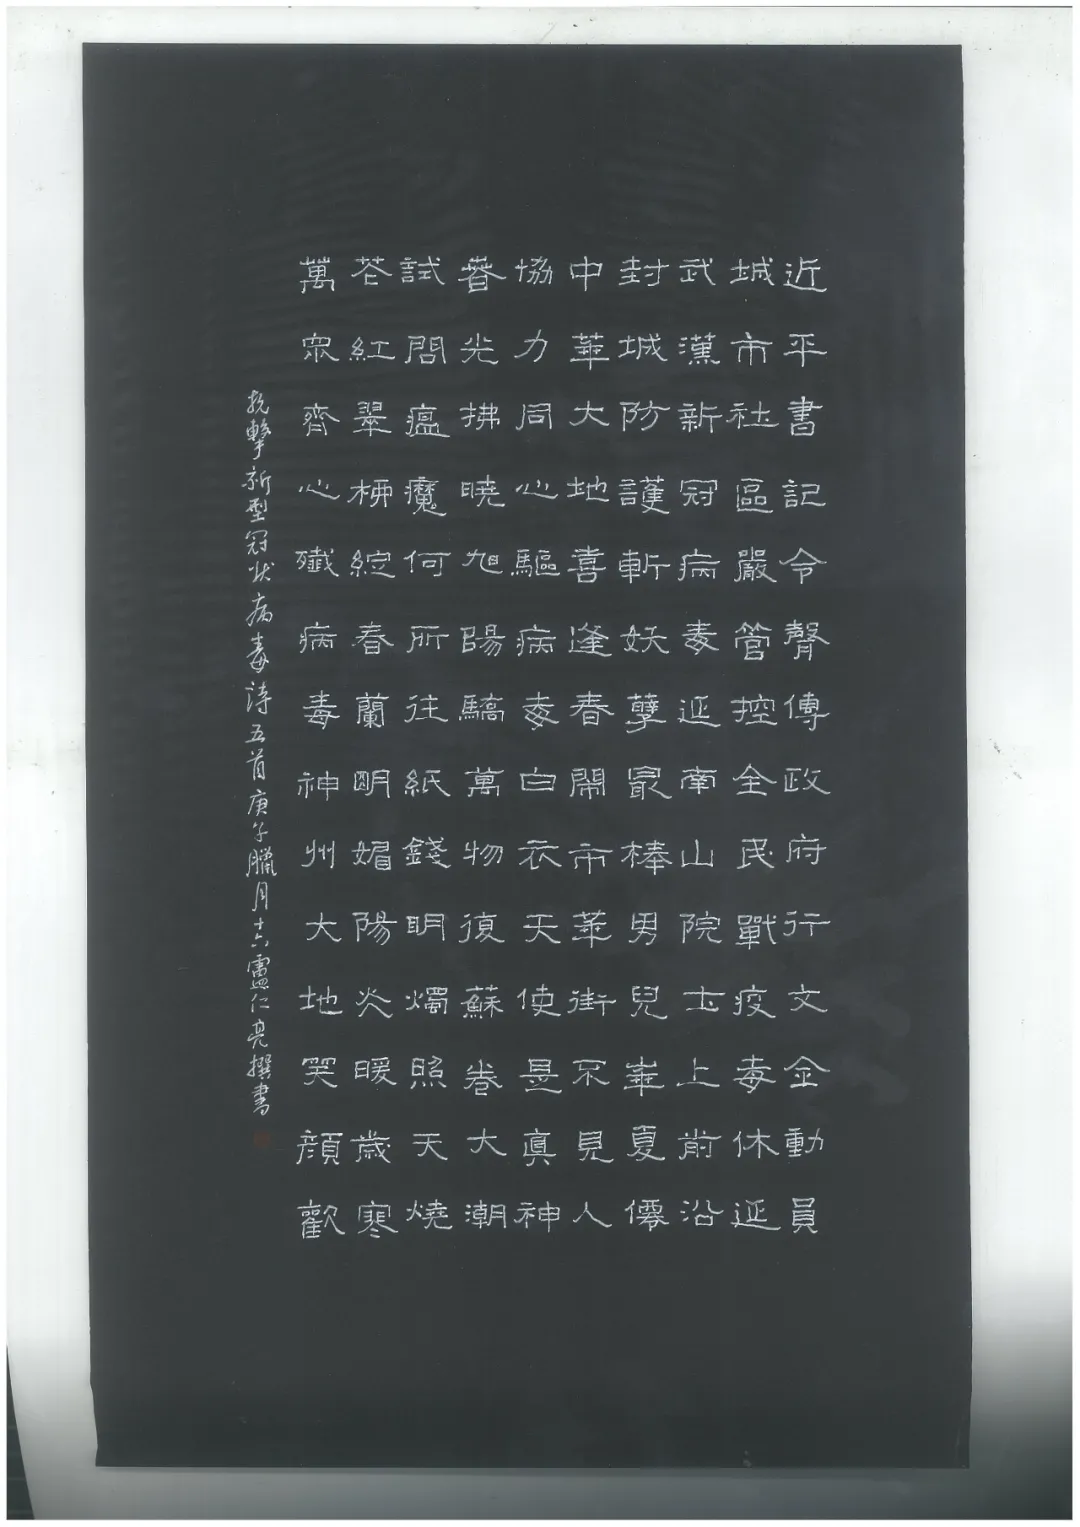 近平書記令聲傳政府行文金動員
城市社區嚴管控全民戰疫毒休延
武漢新冠病毒延南山院士上前沿
封城防護斬妖孽最棒男兒華夏僊
中華大地喜逢春鬧市華街不見人
協力同心驅病毒白衣天使是真神
春光拂曉旭陽驕萬物復蘇卷大潮
試問瘟魔何所往紙錢明燭照天燒
花紅翠柳綻春蘭明媚陽炎暖歲寒
萬眾齊心殲病毒神州大地笑顏歡
抗擊新型冠狀病毒詩五首庚子臘月十六盧仁亮撰書